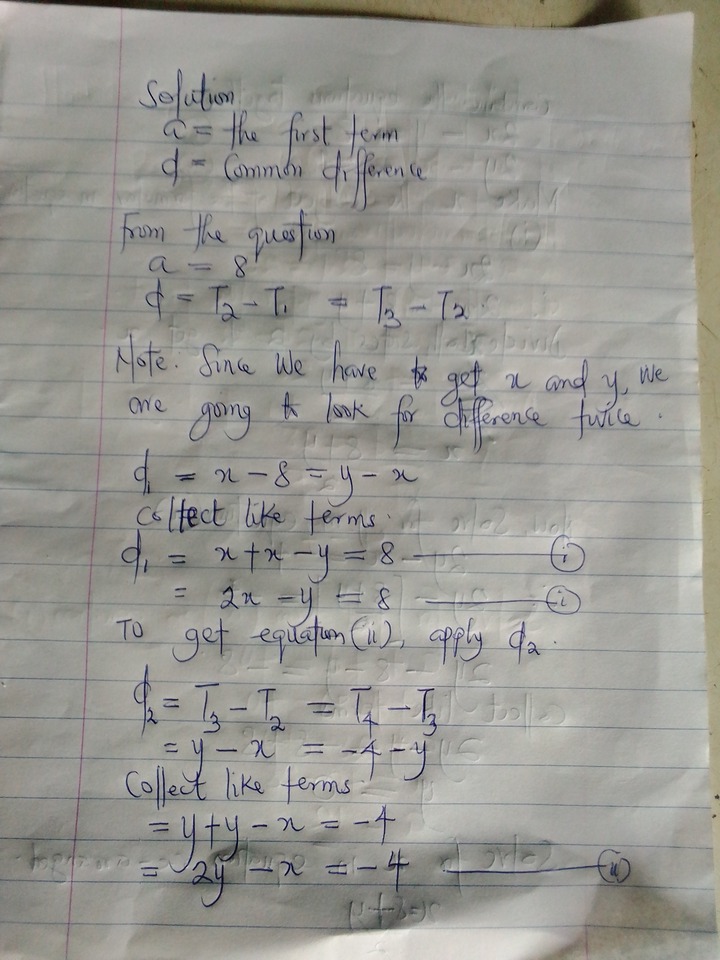 Solution
a = the first term
d = Common difference
From the question
a = 8
d = T₂ - T₁ = T₃ - T₂
Note. Since we have to get x and y, we
are going to look for difference twice.
d₁ = x - 8 = y - x
Collect like terms.
d₁ = x + x - y = 8 — (i)
= 2x - y = 8 — (i)
To get equation (ii), apply d₂.
d₂ = T₃ - T₂ = T₄ - T₃
= y - x = -4 - y
Collect like terms.
= y + y - x = -4
= 2y - x = -4 — (ii)